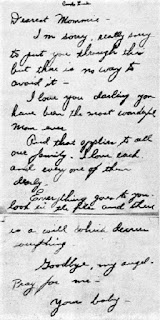 Dearest Mommie -
I'm sorry, really sorry
to put you through this
but there is no way to
avoid it -
I love you darling you
have been the most wonderful
Mom ever
And that applies to all
our family. I love each
and every one of them
dearly -
Everything goes to you -
look in the files and there
is a will which decrees
everything
Goodbye, my angel -
Pray for me -
Your baby -